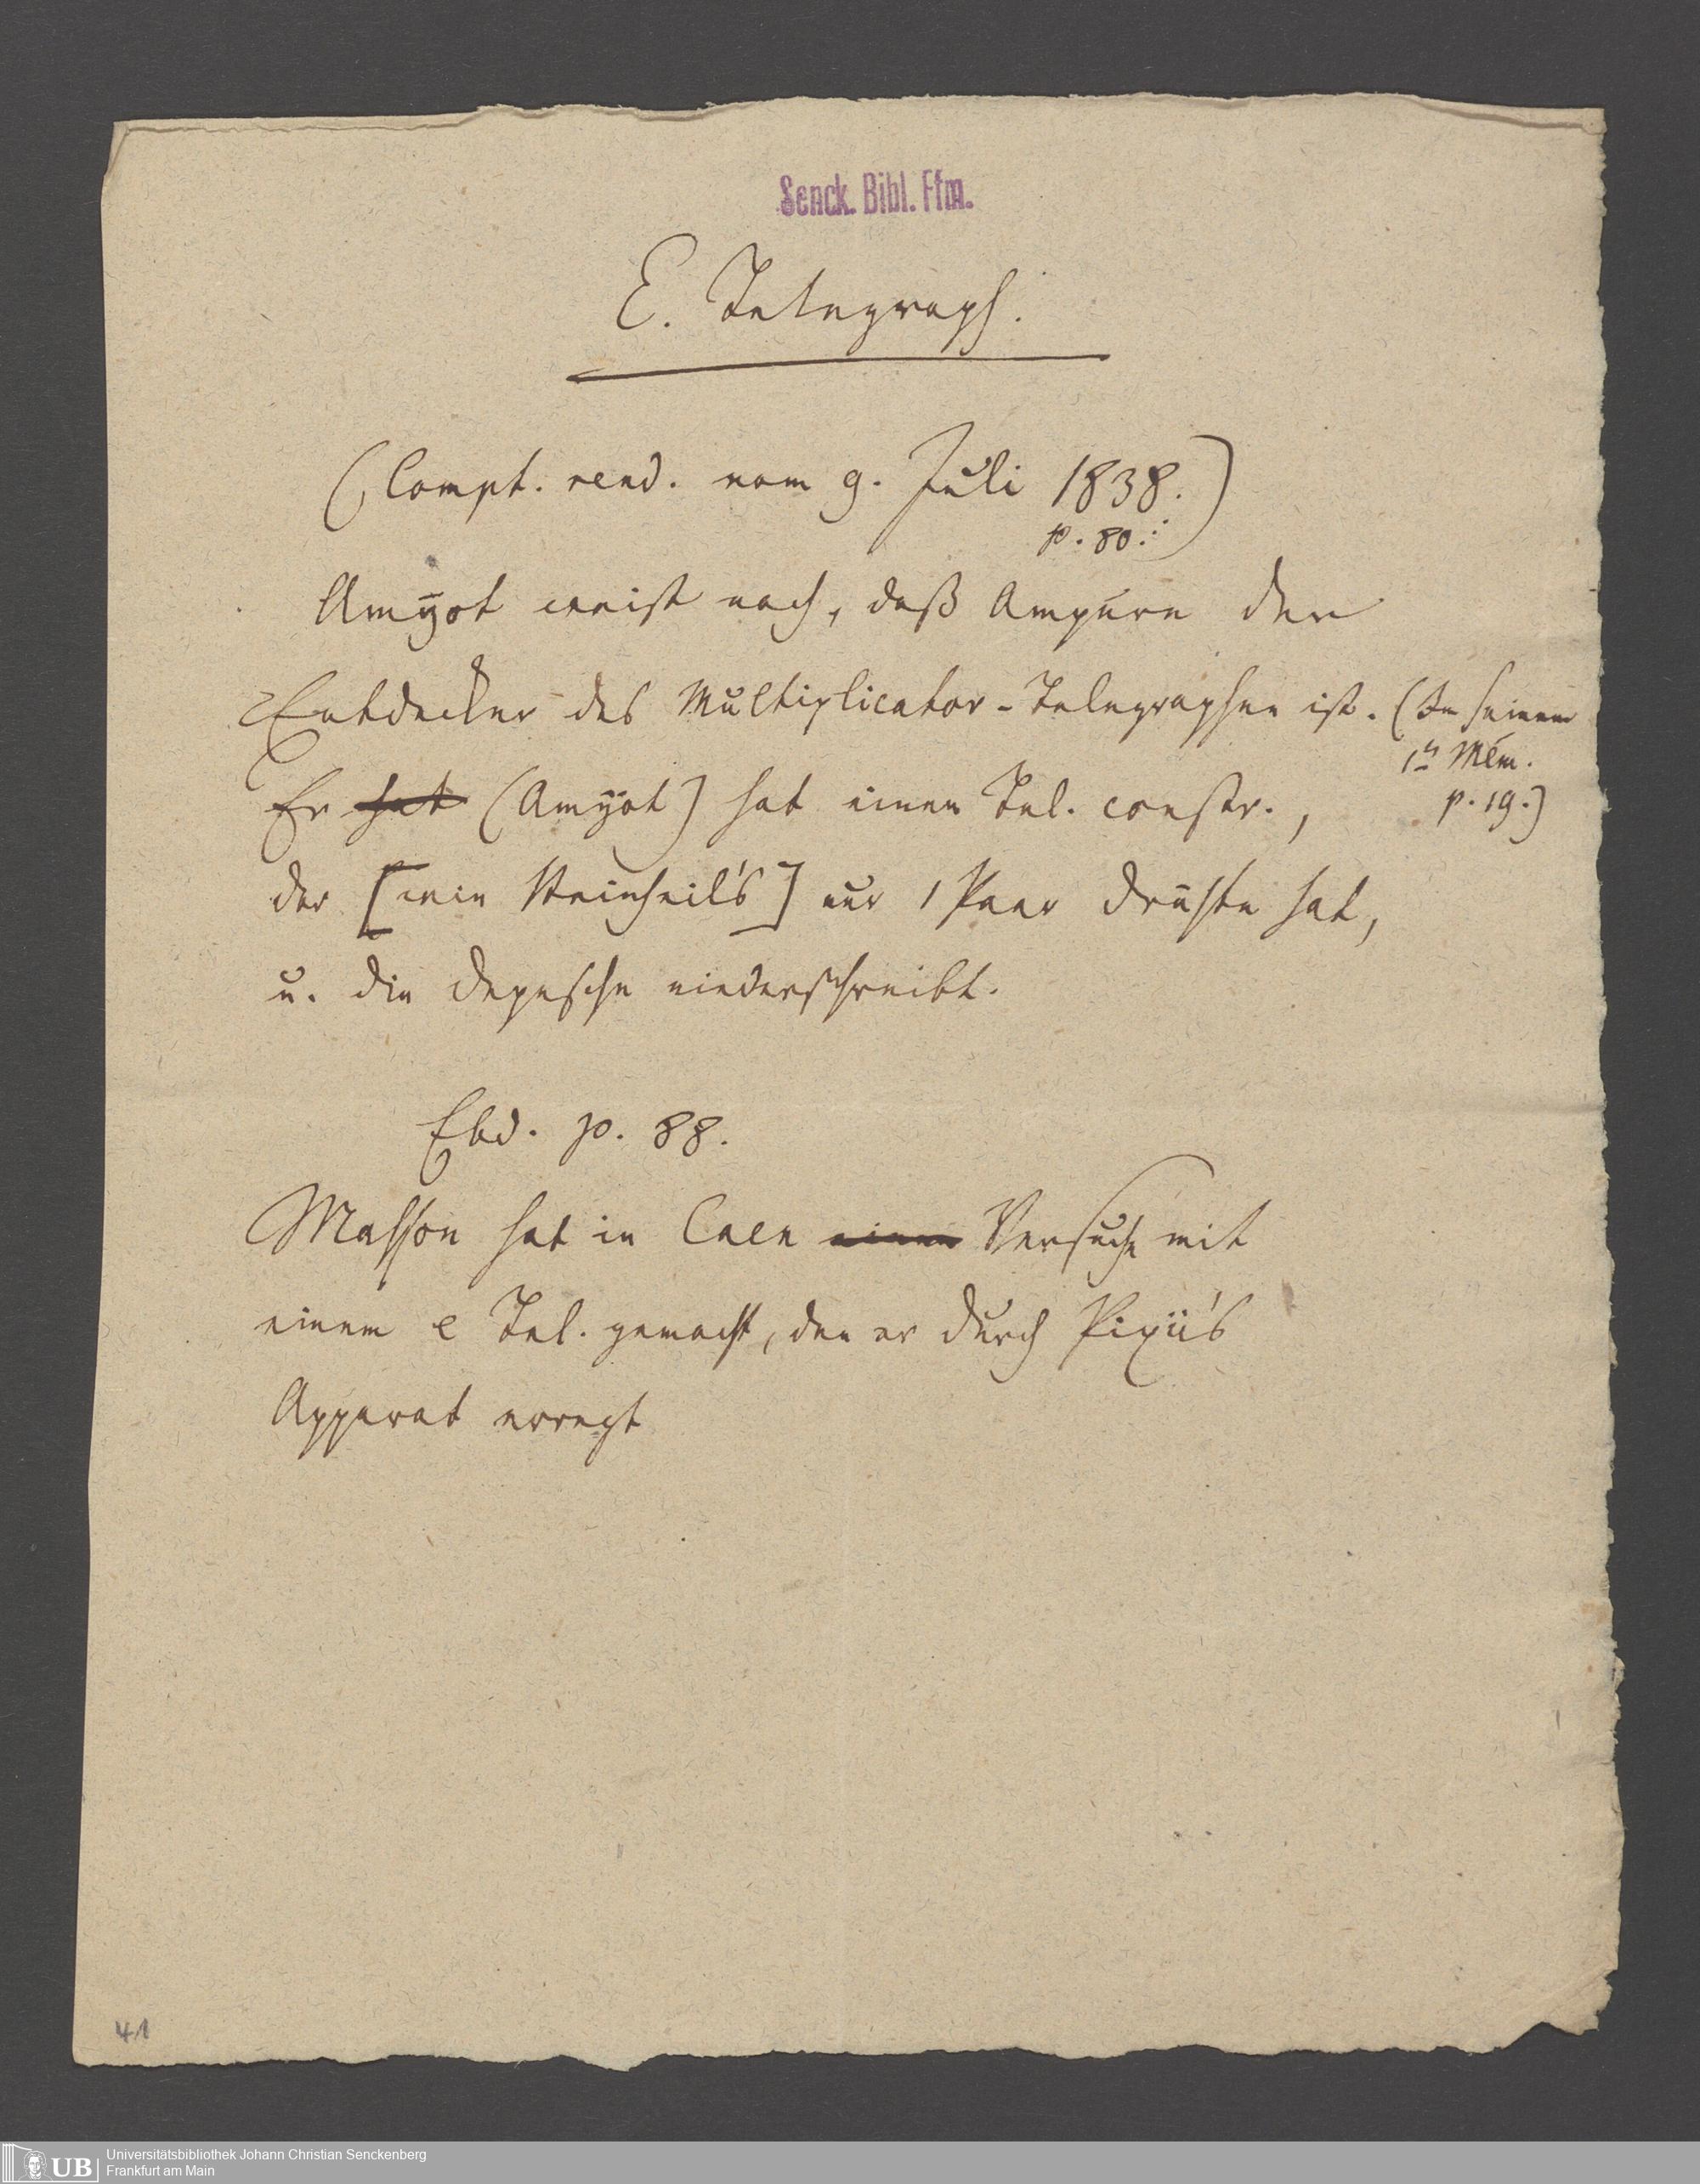 Senck. Bibl. Ffm.
E. Telegraph.
(Compt. rend. vom 9. Juli 1838.
p. 80.)
Amyot weist nach, daß Ampère der
Entdecker des Multiplicator-Telegraphen ist. (In seinem
1n Mém.
p. 19.)
Er hat (Amyot) hat einen Tel. constr.,
der [wie Steinheil's] nur 1 Paar Drähte hat,
u. die Depesche niederschreibt.
Ebd. p. 88.
Masson hat in Caen einen Versuche mit
einem e Tel. gemacht, den er durch Pixii's
Apparat erregt
41
UB
Universitätsbibliothek Johann Christian Senckenberg
Frankfurt am Main